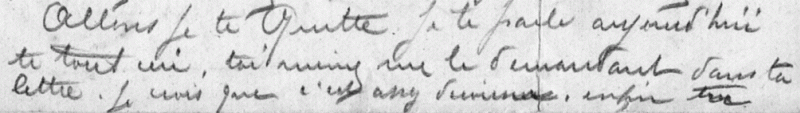 Allons je te Quitte. je te parle aujourd'hui
te tout ici, toi même me le demandant dans ta
lettre. Je crois que c'est assez . enfin